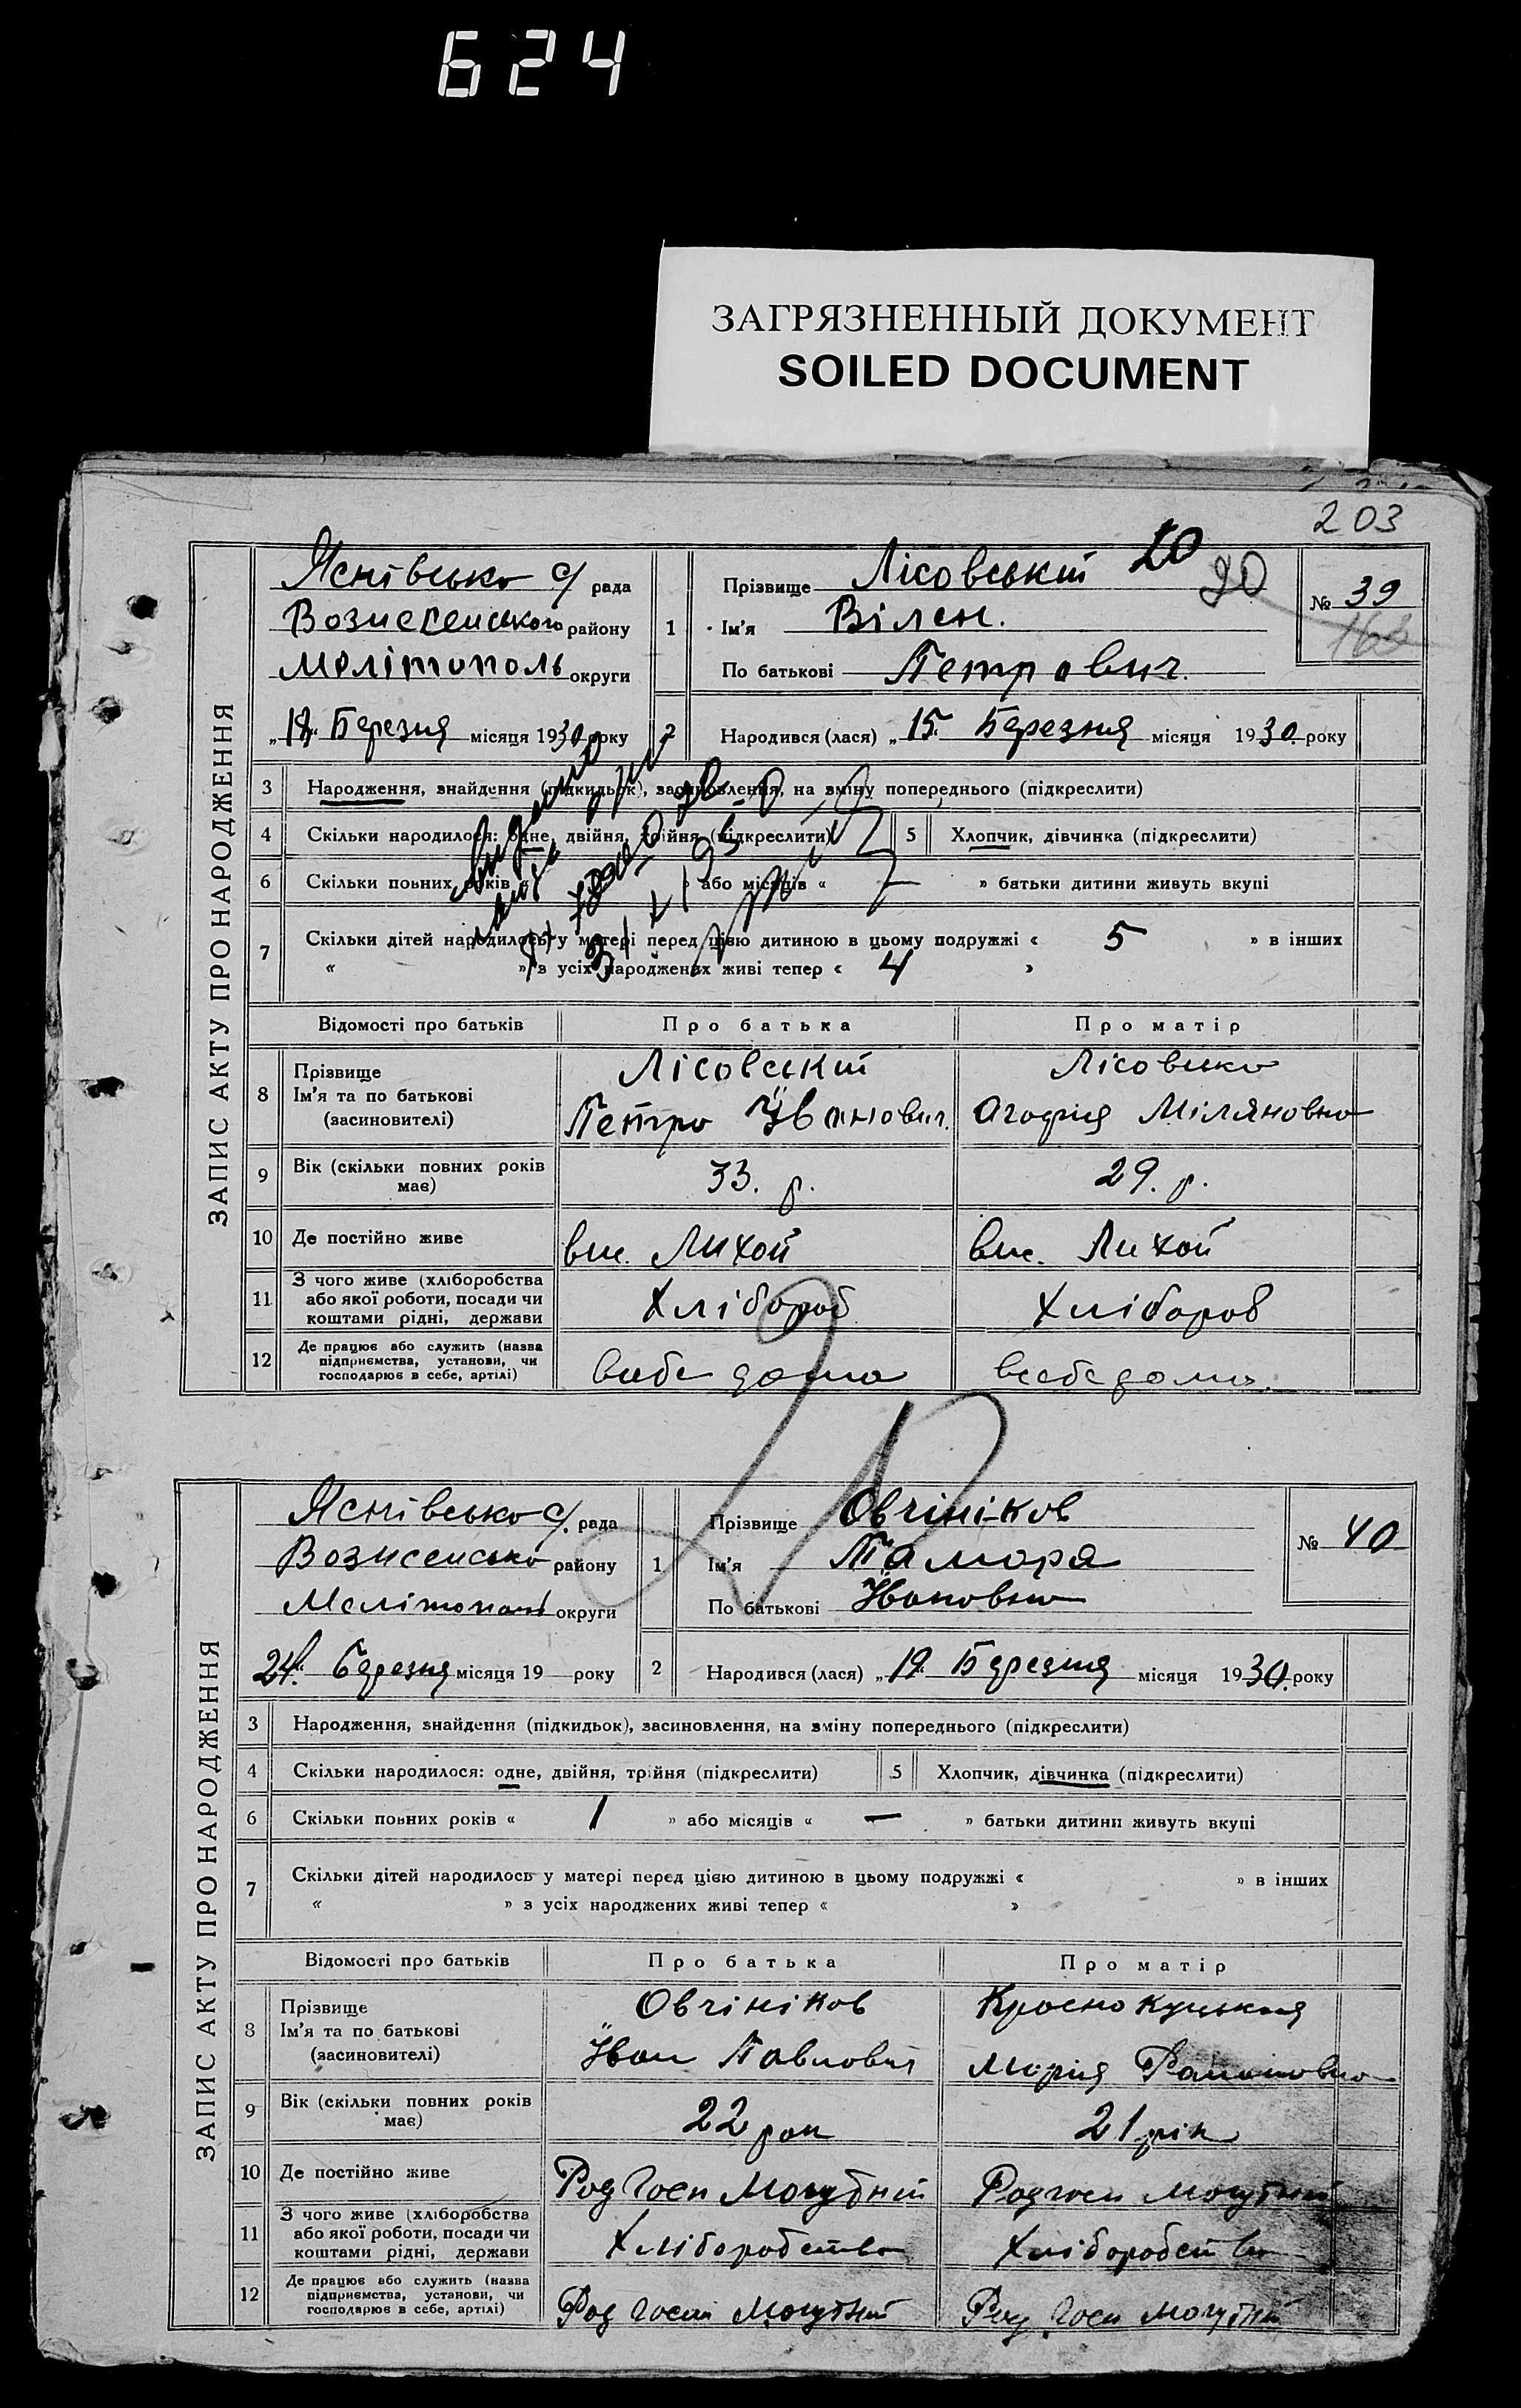 624
ЗАГРЯЗНЕННЫЙ ДОКУМЕНТ
SOILED DOCUMENT
203
ЗАПИС АКТУ ПРО НАРОДЖЕННЯ
Яснівсько с/ рада
Вознесенського району
Мелітополь округи
„18“ Березня місяця 1930 року
1
Прізвище Лісовський
20
20
Ім'я Вілен.
По батькові Петрович.
№ 39
163
2
Народився (лася) „15“ Березня місяця 1930. року
3 Народження, знайдення (підкидьок), засиновлення, на зміну попереднього (підкреслити)
4 Скільки народилося: одне, двійня, трійня (підкреслити)
5 Хлопчик, дівчинка (підкреслити)
6 Скільки повних років « » або місяців « — » батьки дитини живуть вкупі
7 Скільки дітей народилось у матері перед цією дитиною в цьому подружжі « 5 » в інших
« » з усіх народжених живі тепер « 4 »
Відомості про батьків Про батька Про матір
8 Прізвище
Ім'я та по батькові
(засиновителі)
Лісовський
Петро Іванович.
Лісовсько
Агофия Міляновно
9 Вік (скільки повних років
має)
33. р.
29. р.
10 Де постійно живе
вис. Лихой
вис. Лихой
11 З чого живе (хліборобства
або якої роботи, посади чи
коштами рідні, держави
Хлібороб
Хлібороб
12 Де працює або служить (назва
підприємства, установи, чи
господарює в себе, артілі)
всебе дома
всебе дома.
ЗАПИС АКТУ ПРО НАРОДЖЕННЯ
Яснівсько с/. рада
Вознесенсько району
округи
24“ Березня місяця 19 — року
1
Прізвище Овчініков
Ім'я Таморя
По батькові Івановно
№ 40
2
Народився (лася) „19“ Березня місяця 1930. року
3 Народження, знайдення (підкидьок), засиновлення, на зміну попереднього (підкреслити)
4 Скільки народилося: одне, двійня, трійня (підкреслити)
5 Хлопчик, дівчинка (підкреслити)
6 Скільки повних років « 1 » або місяців « — » батьки дитини живуть вкупі
7 Скільки дітей народилось у матері перед цією дитиною в цьому подружжі « » в інших
« » з усіх народжених живі тепер « »
Відомості про батьків Про батька Про матір
8 Прізвище
Ім'я та по батькові
(засиновителі)
Овчініков
Іван Павлович
Краснокуцькая
Мория
9 Вік (скільки повних років
має)
22 рок
21 рік
10 Де постійно живе
Род Госп Могутний
Родгосп Могутний
11 З чого живе (хліборобства
або якої роботи, посади чи
коштами рідні, держави
Хліборобство
Хліборобство
12 Де працює або служить (назва
підприємства, установи, чи
господарює в себе, артілі)
Род Госп Могутний
Род Госп Могутний